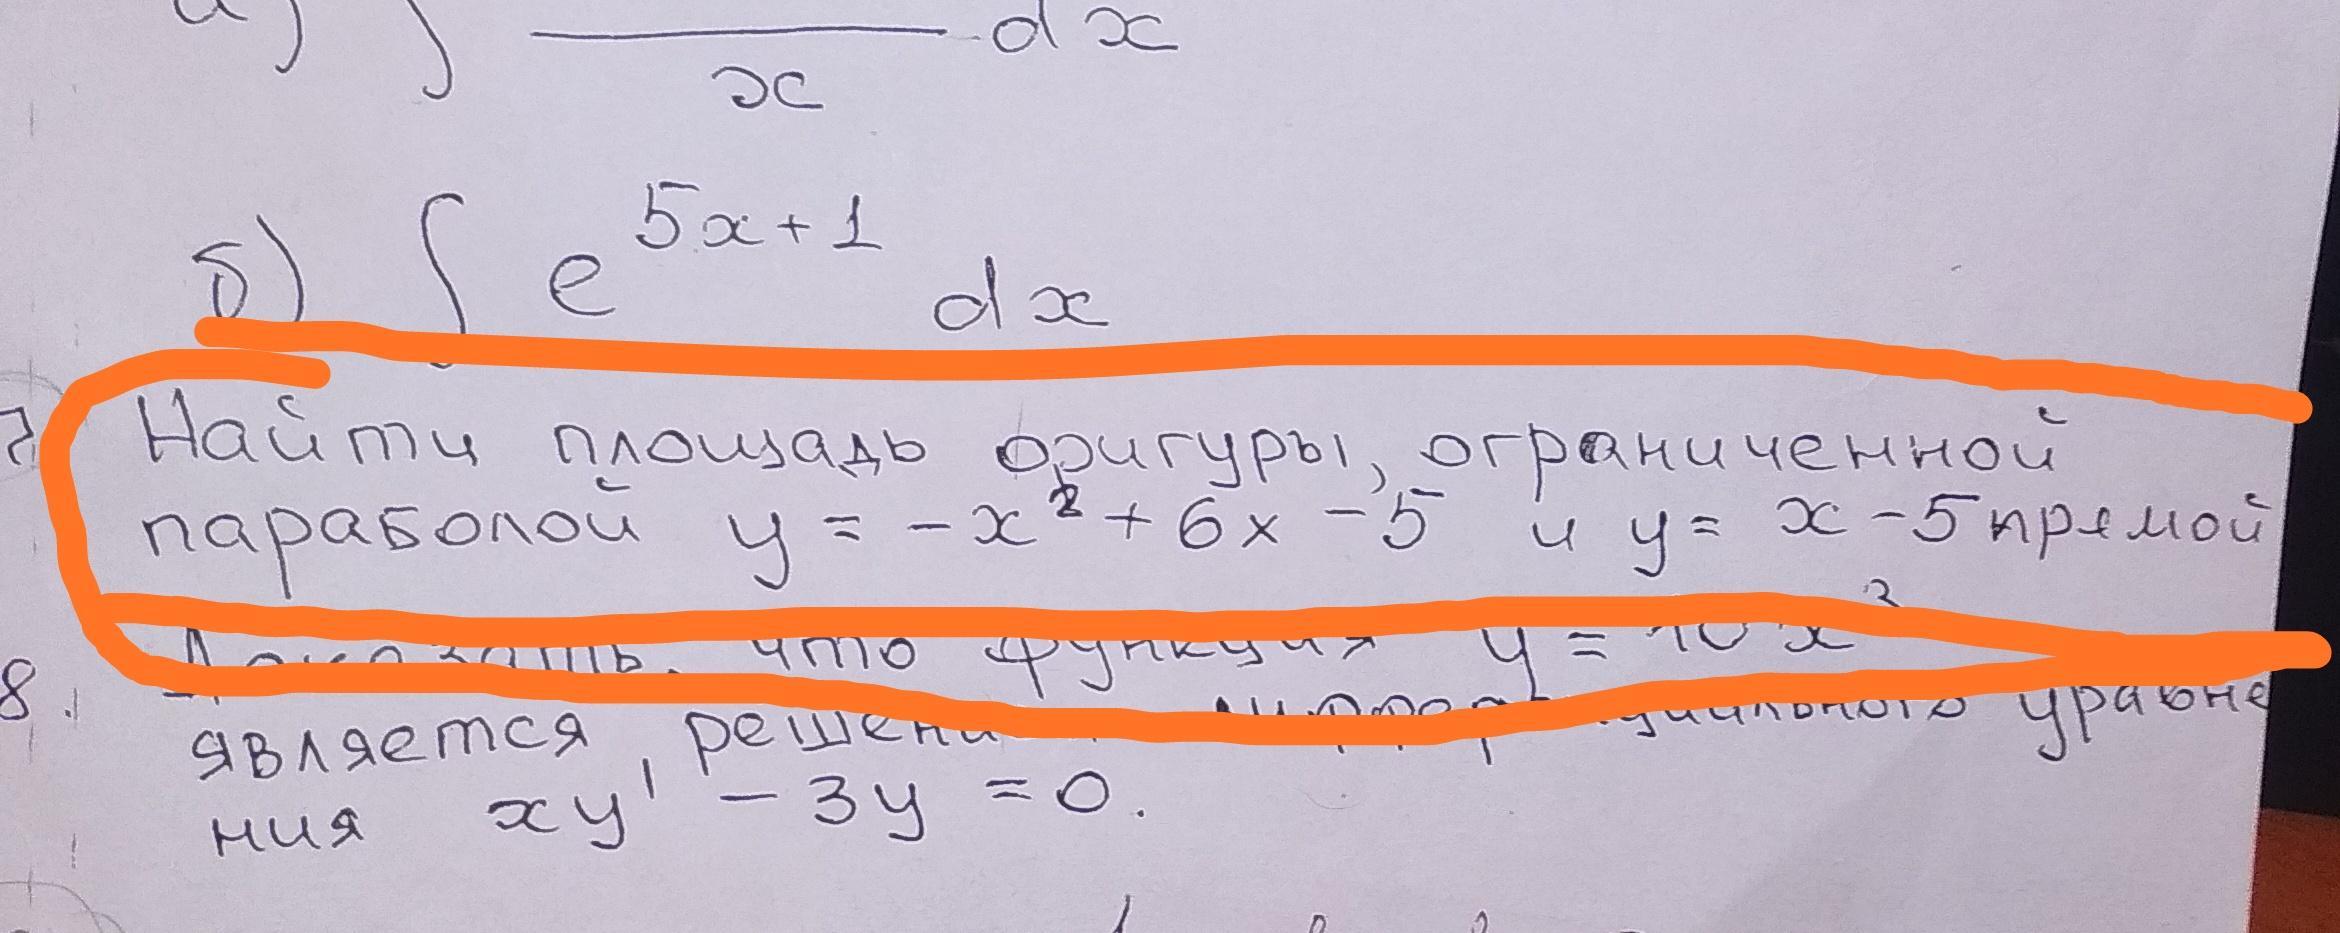 а) ∫ ――― dx
x
б) ∫ e^{5x+1} dx
7 Найти площадь фигуры, ограниченной
параболой y = -x² + 6x - 5 и y = x - 5 прямой
8. Доказать, что функция y = 10x³
является решени дифференциального уравне
ния xy' - 3y = 0.